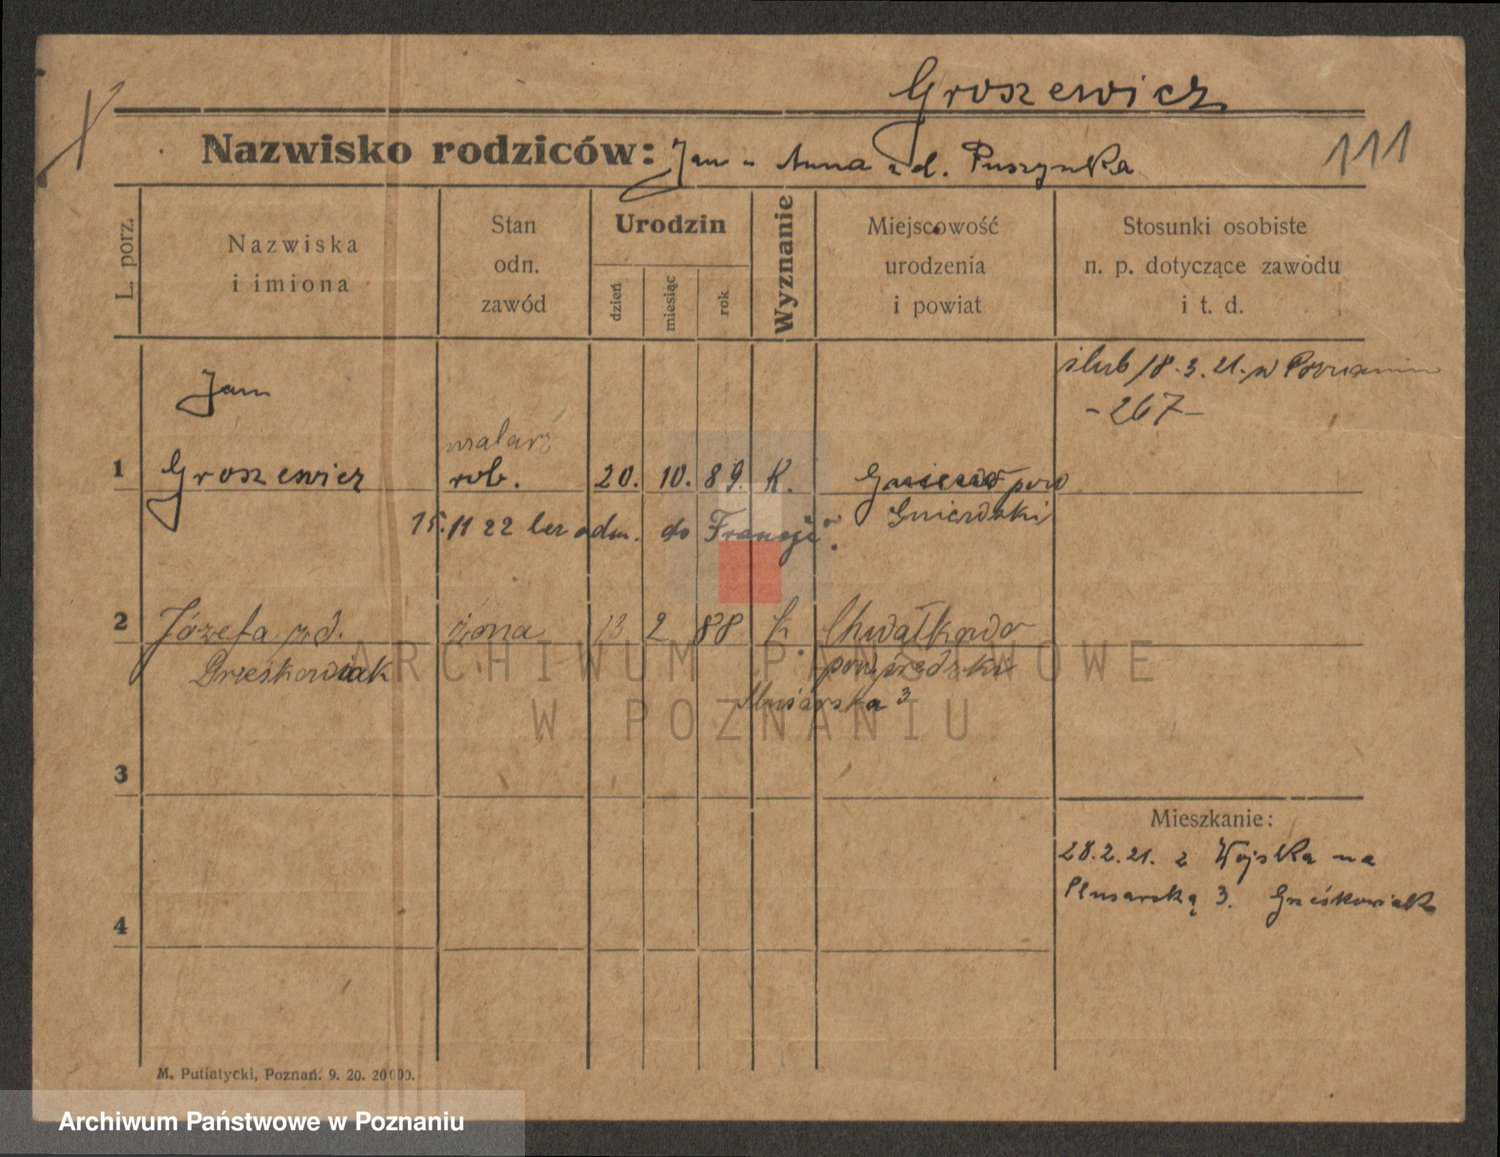 Groszewicz
Nazwisko rodziców: Jan - Anna zd. Puszynka
111
L. porz.
Nazwiska
i imiona
Stan
odn.
zawód
Urodzin
dzień
miesiąc
rok
Wyznanie
Miejscowość
urodzenia
i powiat
Stosunki osobiste
n. p. dotyczące zawodu
i t. d.
ślub 18.3.21. w Poznaniu
-267-
Jan
malarz
1 Groszewicz rob. 20. 10. 89. K. Gniewo pow
Gniewski
15.11 22 bez adm. do Francji.
2 Józefa zd. żona 13 2 88 k. Chwałkowo
Grześkowiak pow. średzki
Ślusarska 3
ARCHIWUM PAŃSTWOWE
W POZNANIU
3
Mieszkanie:
28.2.21. z Wojska na
Ślusarską 3. Grześkowiak
4
M. Putiatycki, Poznań. 9. 20. 20000.
Archiwum Państwowe w Poznaniu